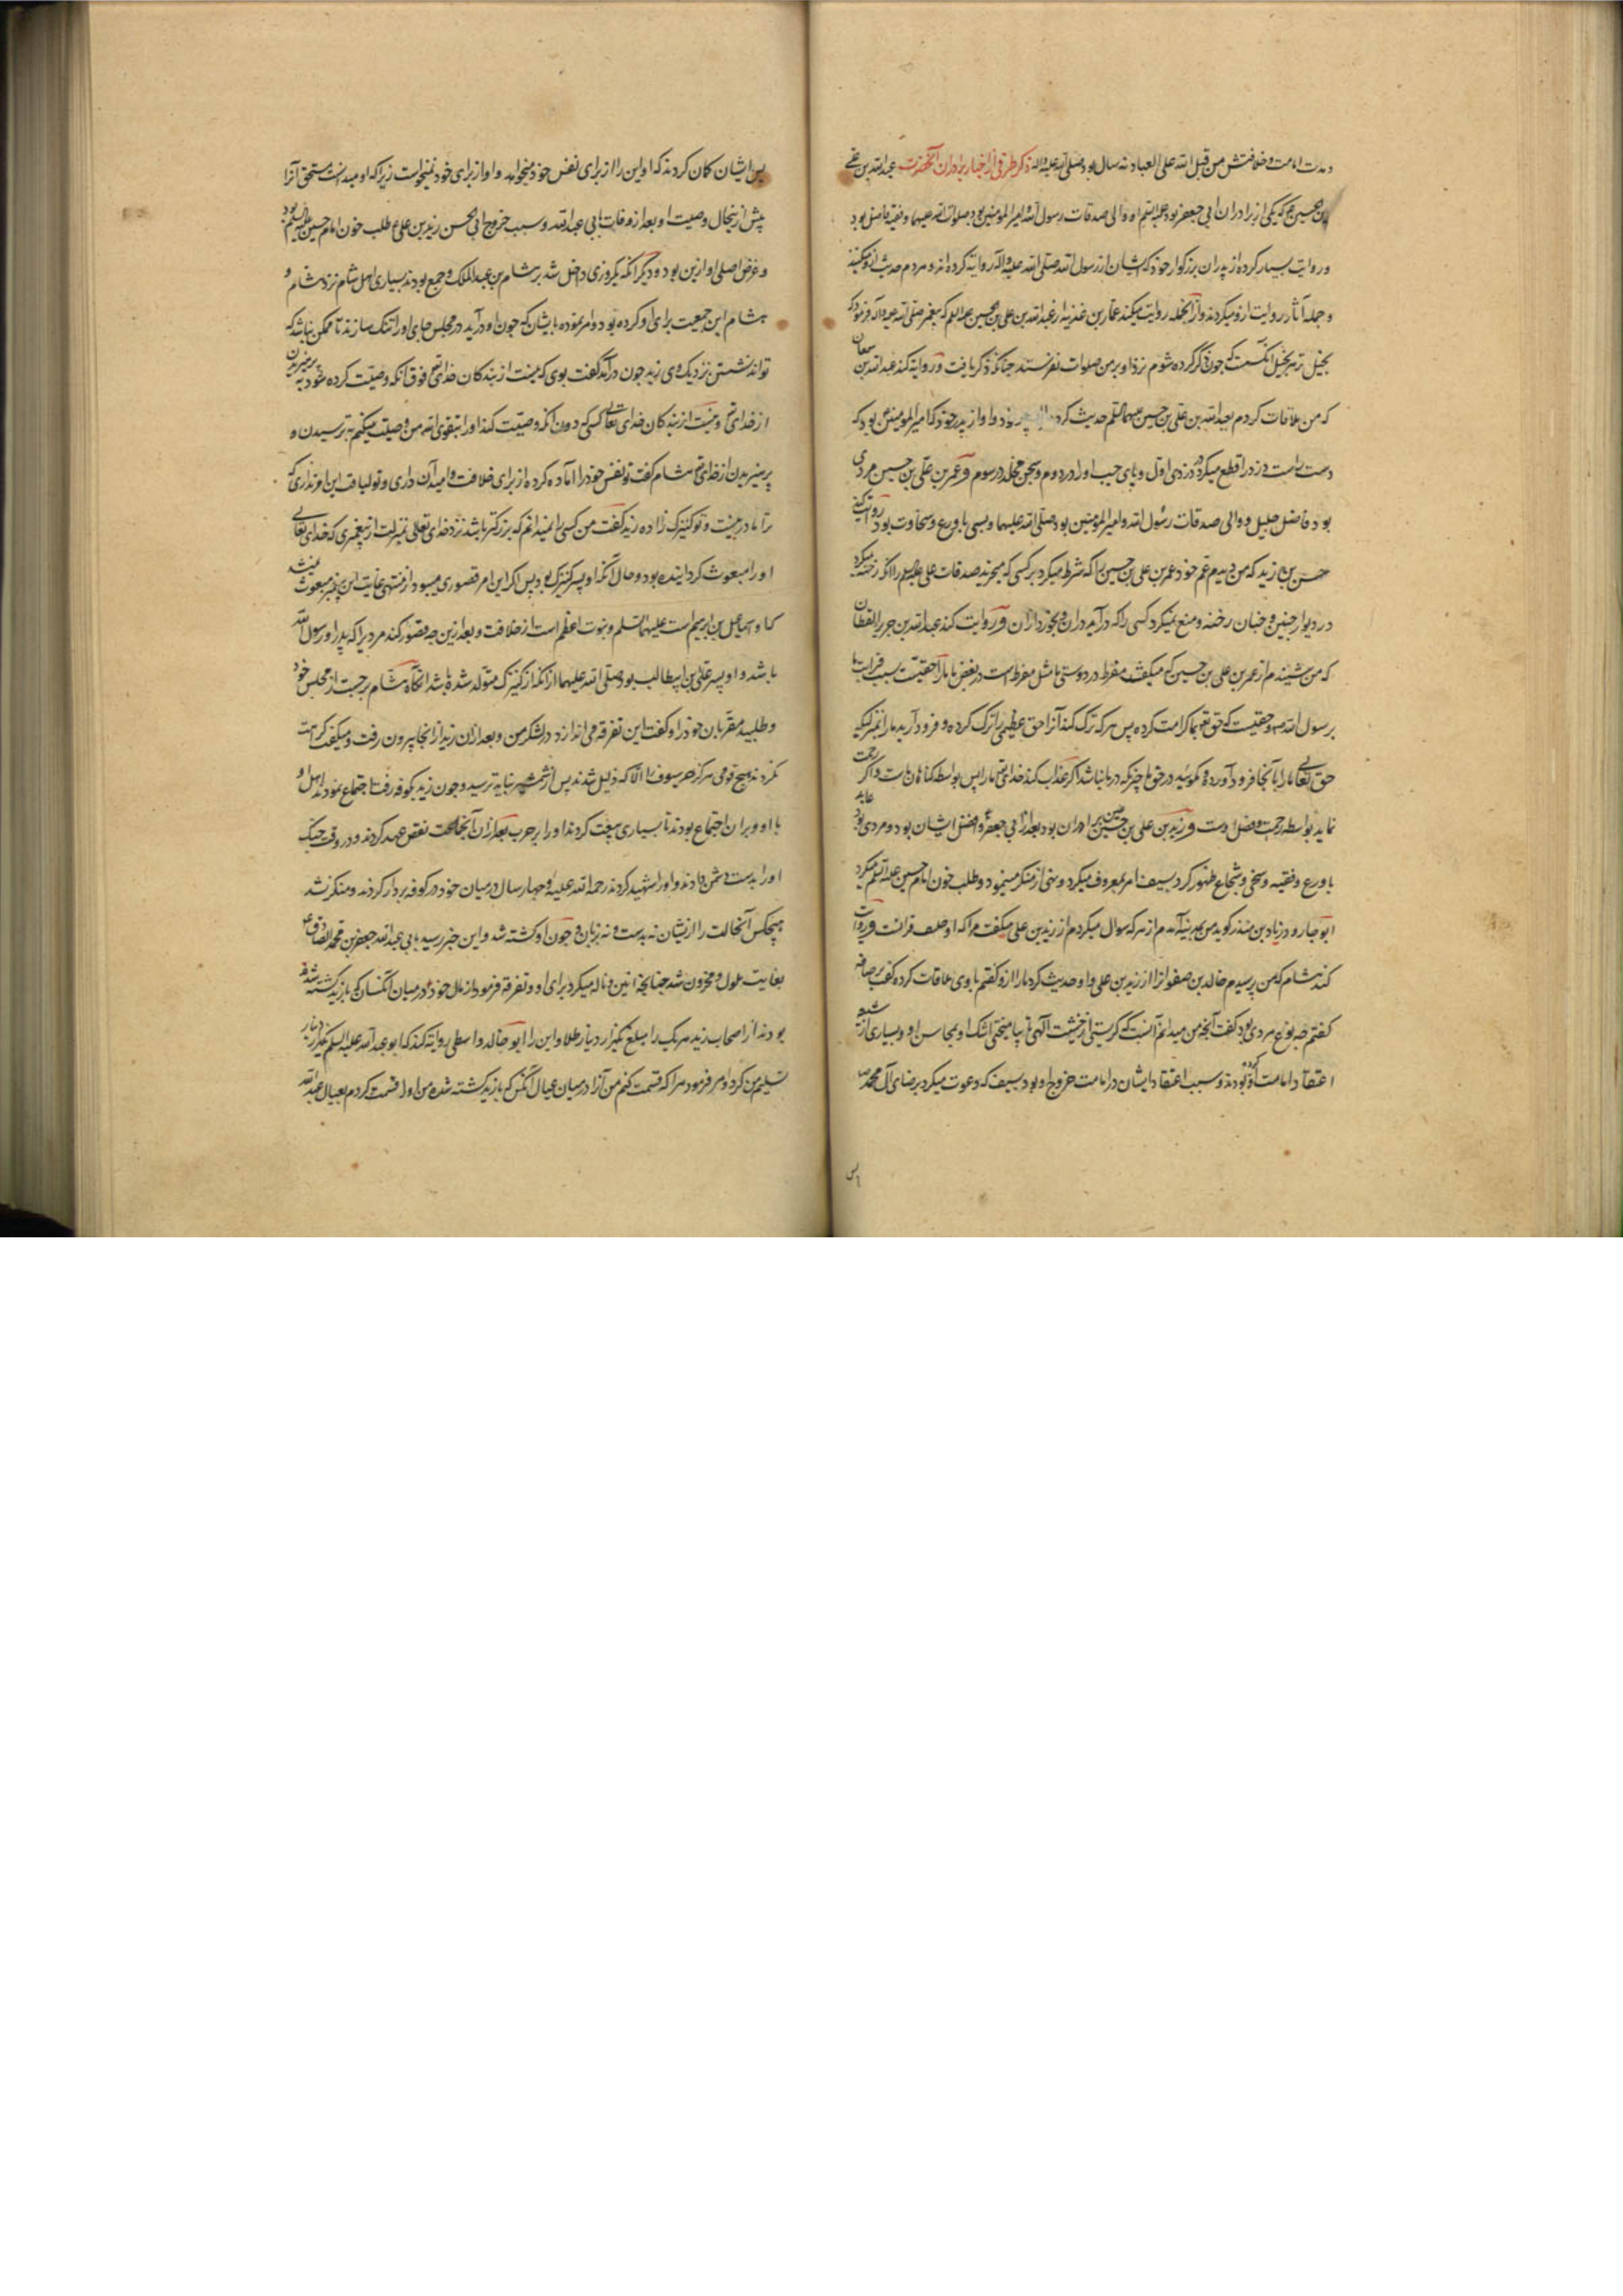 و مدت امامت و خلافتش من قبل الله علی العباد نه سال بود صلی الله علیه و اله ذکر طرفی از اخبار برادران آنحضرت عبدالله بن علی
بن حسین ع که یکی از برادران ابی جعفر بود علیه السلم او والی صدقات رسول الله و امیر المومنین بود صلوات الله علیهما و فقیه فاضل بود
و روایت بسیار کرده از پدران بزرکوار خود که ایشان از رسول الله صلی الله علیه و اله روایة کرده اند و مردم حدیث ازو میکنند
و جمله آثار روایت ازو میکردند و از آنجمله روایت میکند عمار بن غزیه از عبدالله بن علی بن حسین علیه السلم که پیغمبر صلی الله علیه و آله فرمود که
بخیل ترین بخیل آنکس است که چون ذکر کرده شوم نزد او بر من صلوات نفرستد چنانکه ذکر یافت و روایة کند عبدالله بن سمعان
که من ملاقات کردم بعبدالله بن علی بن حسین علیهما السلم حدیث کرد از پدر خود و او از پدر خود که امیر المومنین بود که
دست راست دزد را قطع میکرد در دزدی اول و پای چپ او را در دوم و سجن مخلد در سوم و عمر بن علی بن حسین مردی
بود فاضل جلیل و والی صدقات رسول الله و امیر المومنین بود صلی الله علیهما و بسی با ورع و سخاوت بود روایت کند
حسن بن زید که من دیدم عم خود عمر بن علی بن حسین را که شرط میکرد بر کسی که میخرند صدقات علی علیه السلم را انکه رخنه میکرد
در دیوار چنین و چنان رخنه و منع نمیکرد کسی را که در آید در ان و بخورد از ان و روایت کند عبدالله بن جریر القطان
که من شنیدم از عمر بن علی بن حسین که میکفت مفرط در دوستی ما مثل مفرط است در بغض ما ما را حقیت بسبب قرابت ما
برسول الله ص و حقیت که حق تع بما کرامت کرده پس هر که ترک کند آنرا حق عظیمی را ترک کرده و فرود آرید ما را بمنزلیکه
حق تعالی ما را بانجا فرود آورده و مکوئید در حق ما چیزیکه در ما نباشد اکر عذاب کند خدای تع ما را پس بواسطه کناهان ماست و اکر رحمت
نماید بواسطه رحمت و فضل اوست و زید بن علی بن حسین بهترین برادران بود بعد از ابی جعفر ع و افضل ایشان بود و مردی بود عابد
با ورع و فقیه و سخی و شجاع ظهور کرد بسیف امر بمعروف میکرد و نهی از منکر مینمود و طلب خون امام حسین علیه السلم میکرد
ابو جارود زیاد بن منذر کوید من بمدینه آمدم از هر که سوال میکردم از زید بن علی میکفت مرا که او حلیف قرانست و روایت
کند هشام که من پرسیدم خالد بن صفوان را از زید بن علی و او حدیث کرد ما را ازو کفتم با وی ملاقات کرده کفت برصافه
کفتم چه نوع مردی بود کفت آنچه من میدانم آنست که کریستی از خشیت آلهی تا بیامیختی اشک او بمحاسن او و بسیاری از شیعه
اعتقاد امامت او کرده بودند و سبب اعتقاد ایشان در امامت خروج او بود بسیف که دعوت میکرد برضای آل محمد ص
پس
پس ایشان کمان کردند که او این را از برای نفس خود میخواهد و او از برای خود نمیخواست زیرا که او میدانست مستحق آنرا
پیش ازینحال وصیت او بعد از وفات بابی عبدالله و سبب خروج ابی الحسن زید بن علی ع طلب خون امام حسین علیه السلم بود
و غرض اصلی او ازین بود و دیکر آنکه یکروزی داخل شد بر هشام بن عبدالملک و جمع بودند بسیاری اهل شام نزد هشام و
هشام این جمعیت برای او کرده بود و امر نموده بایشان که چون او در آید در مجلس جای او را تنک سازند تا ممکن نباشد که
تواند نشستن نزدیک وی زید چون در آمد کفت بوی که نیست از بندکان خدای تع فوق آنکه وصیت کرده شود به پرهیزیدن
از خدای تع و نیست از بندکان خدای تعالی کسی که دون آنکه وصیت کند او را بتقوی الله من وصیت میکنم به ترسیدن و
پرهیزیدن از خدای تع هشام کفت تو نفس خود را آماده کرده از برای خلافت و امید آن داری و تو لیاقت این امر نداری که
ترا مادر نیست و تو کنیزک زاده زید کفت من کسی را نمیدانم که بزرکتر باشد نزد خدای تعالی بمنزلت از پیغمبری که خدای تعالی
او را مبعوث کردانیده بود و حال آنکه او پسر کنیزک بود پس اکر این امر قصوری میبود از منتهی غایت این پیغمبر مبعوث نمیشد
که او سماعیل بن ابرهیم است علیهما السلم و نبوت اعظم است از خلافت و بعد ازین چه قصور کند مردیرا که پدر او رسول الله
باشد و او پسر علی بن ابیطالب بود صلی الله علیهما از آنکه از کنیزک متولد شده باشد انکاه هشام برجست از مجلس خود
و طلبید مقربان خود را و کفت این تفرقه می اندازد در لشکر من و بعد از ان زید از انجا بیرون رفت و میکفت کراهت
نکردند هیچ قومی هرکز حر سیوف را الا که ذلیل شدند پس از شمشیر نباید ترسید و چون زید بکوفه رفت اجتماع نمودند اهل او
با او و بران اجتماع بودند تا بسیاری بیعت کردند او را بر حرب بعد از ان آنجماعت نقض عهد کردند و در وقت جنک
او را بدست دشمن دادند و او را شهید کردند رحمة الله علیه و چهار سال در میان خود در کوفه بر دار کردند و منکر نشد
هیچکس آنحالت را از یشان نه بدست و نه بزبان و چون او کشته شد و این خبر رسید بابی عبدالله جعفر بن محمد الصادق ع
بغایت ملول و محزون شد چنانچه انین و ناله میکرد برای او و تفرقه فرمود از مال خود در میان آنکسان که با زید کشته شده
بودند از اصحاب زید هر یک را مبلغ یکهزار دینار طلا و این را ابو خالد واسطی روایة کند که ابو عبدالله علیه السلم یکهزار دینار
تسلیم من کرد و امر فرمود مرا که قسمت کنم من آنرا در میان عیال آنکس که با زید کشته شده من او را قسمت کردم بعیال عبدالله